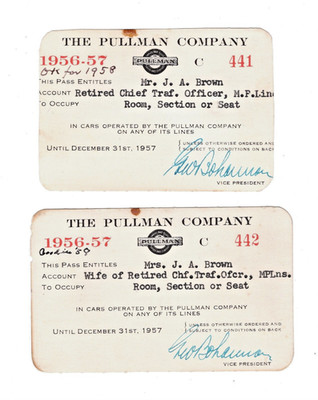 THE PULLMAN COMPANY
1956-57 PULLMAN C 441
OK for 1958
THIS PASS ENTITLES Mr. J. A. Brown
ACCOUNT Retired Chief Traf. Officer, M.P.Lin
TO OCCUPY Room, Section or Seat
IN CARS OPERATED BY THE PULLMAN COMPANY
ON ANY OF ITS LINES
UNTIL DECEMBER 31ST, 1957 UNLESS OTHERWISE ORDERED AND
SUBJECT TO CONDITIONS ON BACK
Geo Bohannon
VICE PRESIDENT
THE PULLMAN COMPANY
1956-57 PULLMAN C 442
THIS PASS ENTITLES Mrs. J. A. Brown
ACCOUNT Wife of Retired Chf.Traf.Ofcr., MPLns.
TO OCCUPY Room, Section or Seat
IN CARS OPERATED BY THE PULLMAN COMPANY
ON ANY OF ITS LINES
UNTIL DECEMBER 31ST, 1957 UNLESS OTHERWISE ORDERED AND
SUBJECT TO CONDITIONS ON BACK
Geo Bohannon
VICE PRESIDENT